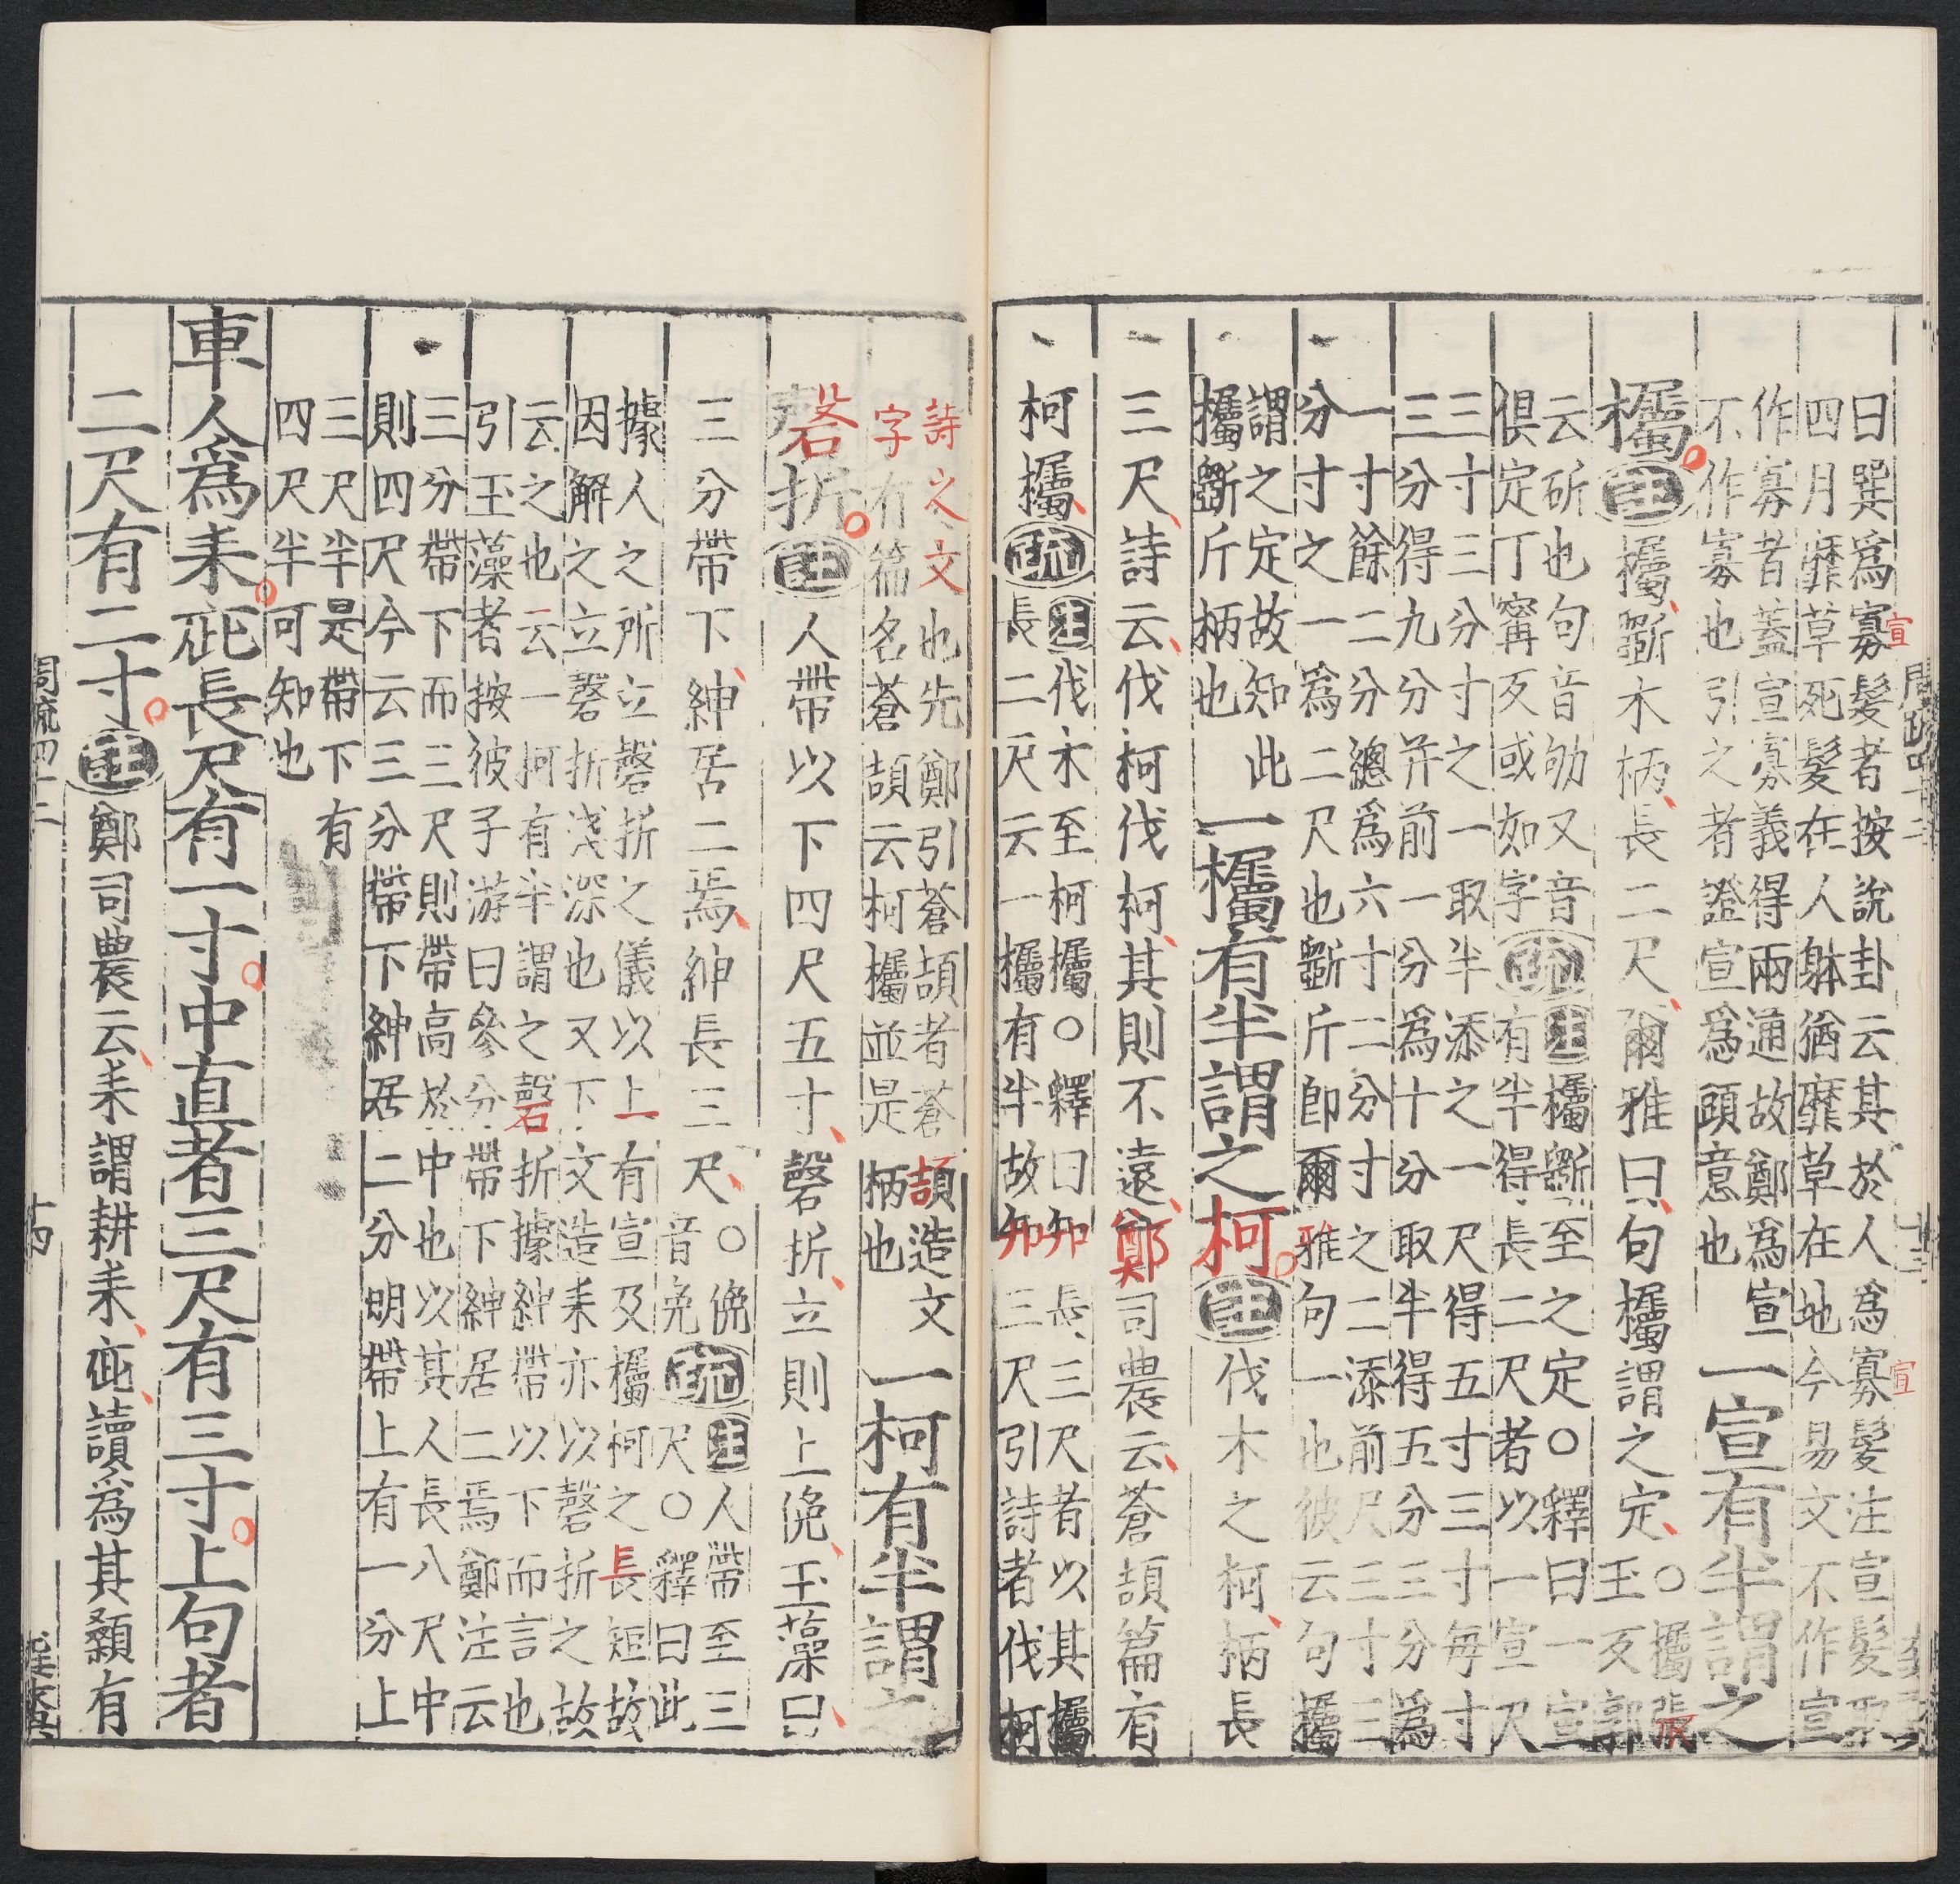 曰巽爲寡髮者按說卦云其於人爲寡髮注宣髮取
四月靡草死髮在人躰猶靡草在地今易文不作宣
作寡者蓋宣寡義得兩通故鄭爲宣
不作寡也引之者證宣爲頭意也
一宣有半謂之
欘註欘斲木柄長二尺爾雅曰句欘謂之定
○欘張
玉反郭
云斫也句音劬又音
俱定丁寗反或如字
疏註欘斲至之定○釋曰一宣
有半得長二尺者以一宣尺
三寸三分寸之一取半添之一尺得五寸三寸每寸
三分得九分并前一分爲十分取半得五分三分爲
一寸餘二分總爲六寸二分寸之二添前尺三寸三
分寸之一爲二尺也斲斤即爾雅句一也彼云句欘
謂之定故知此
欘斲斤柄也
一欘有半謂之柯註伐木之柯柄長
三尺詩云伐柯伐柯其則不遠鄭司農云蒼頡篇有
柯欘疏
註伐木至柯欘○釋曰知長三尺者以其欘
長二尺云一欘有半故知三尺引詩者伐柯
詩之文也先鄭引蒼頡者蒼頡造文
字有篇名蒼頡云柯欘並是柄也
一柯有半謂之
磬折註人帶以下四尺五寸磬折立則上俛玉藻曰
三分帶下紳居二焉紳長三尺
○俛
音免
疏註人帶至三
尺○釋曰此
據人之所立磬折之儀以上有宣及欘柯之長短故
因解之立磬折淺深也又下文造耒亦以磬折之故
云之也云一柯有半謂之磬折據紳帶以下而言也
引玉藻者按彼子游曰參分帶下紳居二焉鄭注云
三分帶下而三尺則帶高於中也以其人長八尺中
則四尺今云三分帶下紳居二分明帶上有一分上
三尺半是帶下有
四尺半可知也
車人爲耒庛長尺有一寸中直者三尺有三寸上句者
二尺有二寸註鄭司農云耒謂耕耒庛讀爲其顙有
周疏四十二
十四